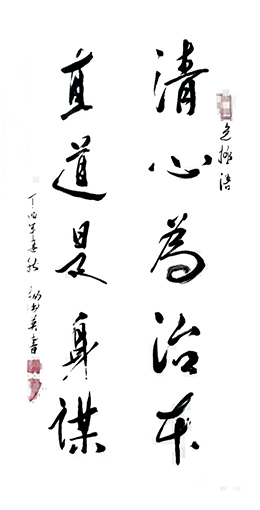 包拯語
清心為治本
直道是身謀
丁酉年 秋
書